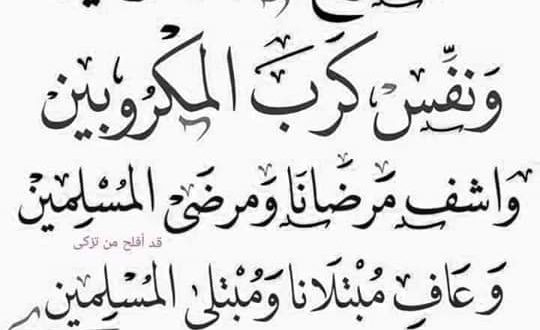 وَنفِّسْ كَرَبَ المَكْرُوبين
وَاشفِ مَرضَانَا وَمرضَى المُسْلِمين
قد أفلح من تزكى
وَعَافِ مُبْتَلانا وَمُبْتلى المُسْلِمين